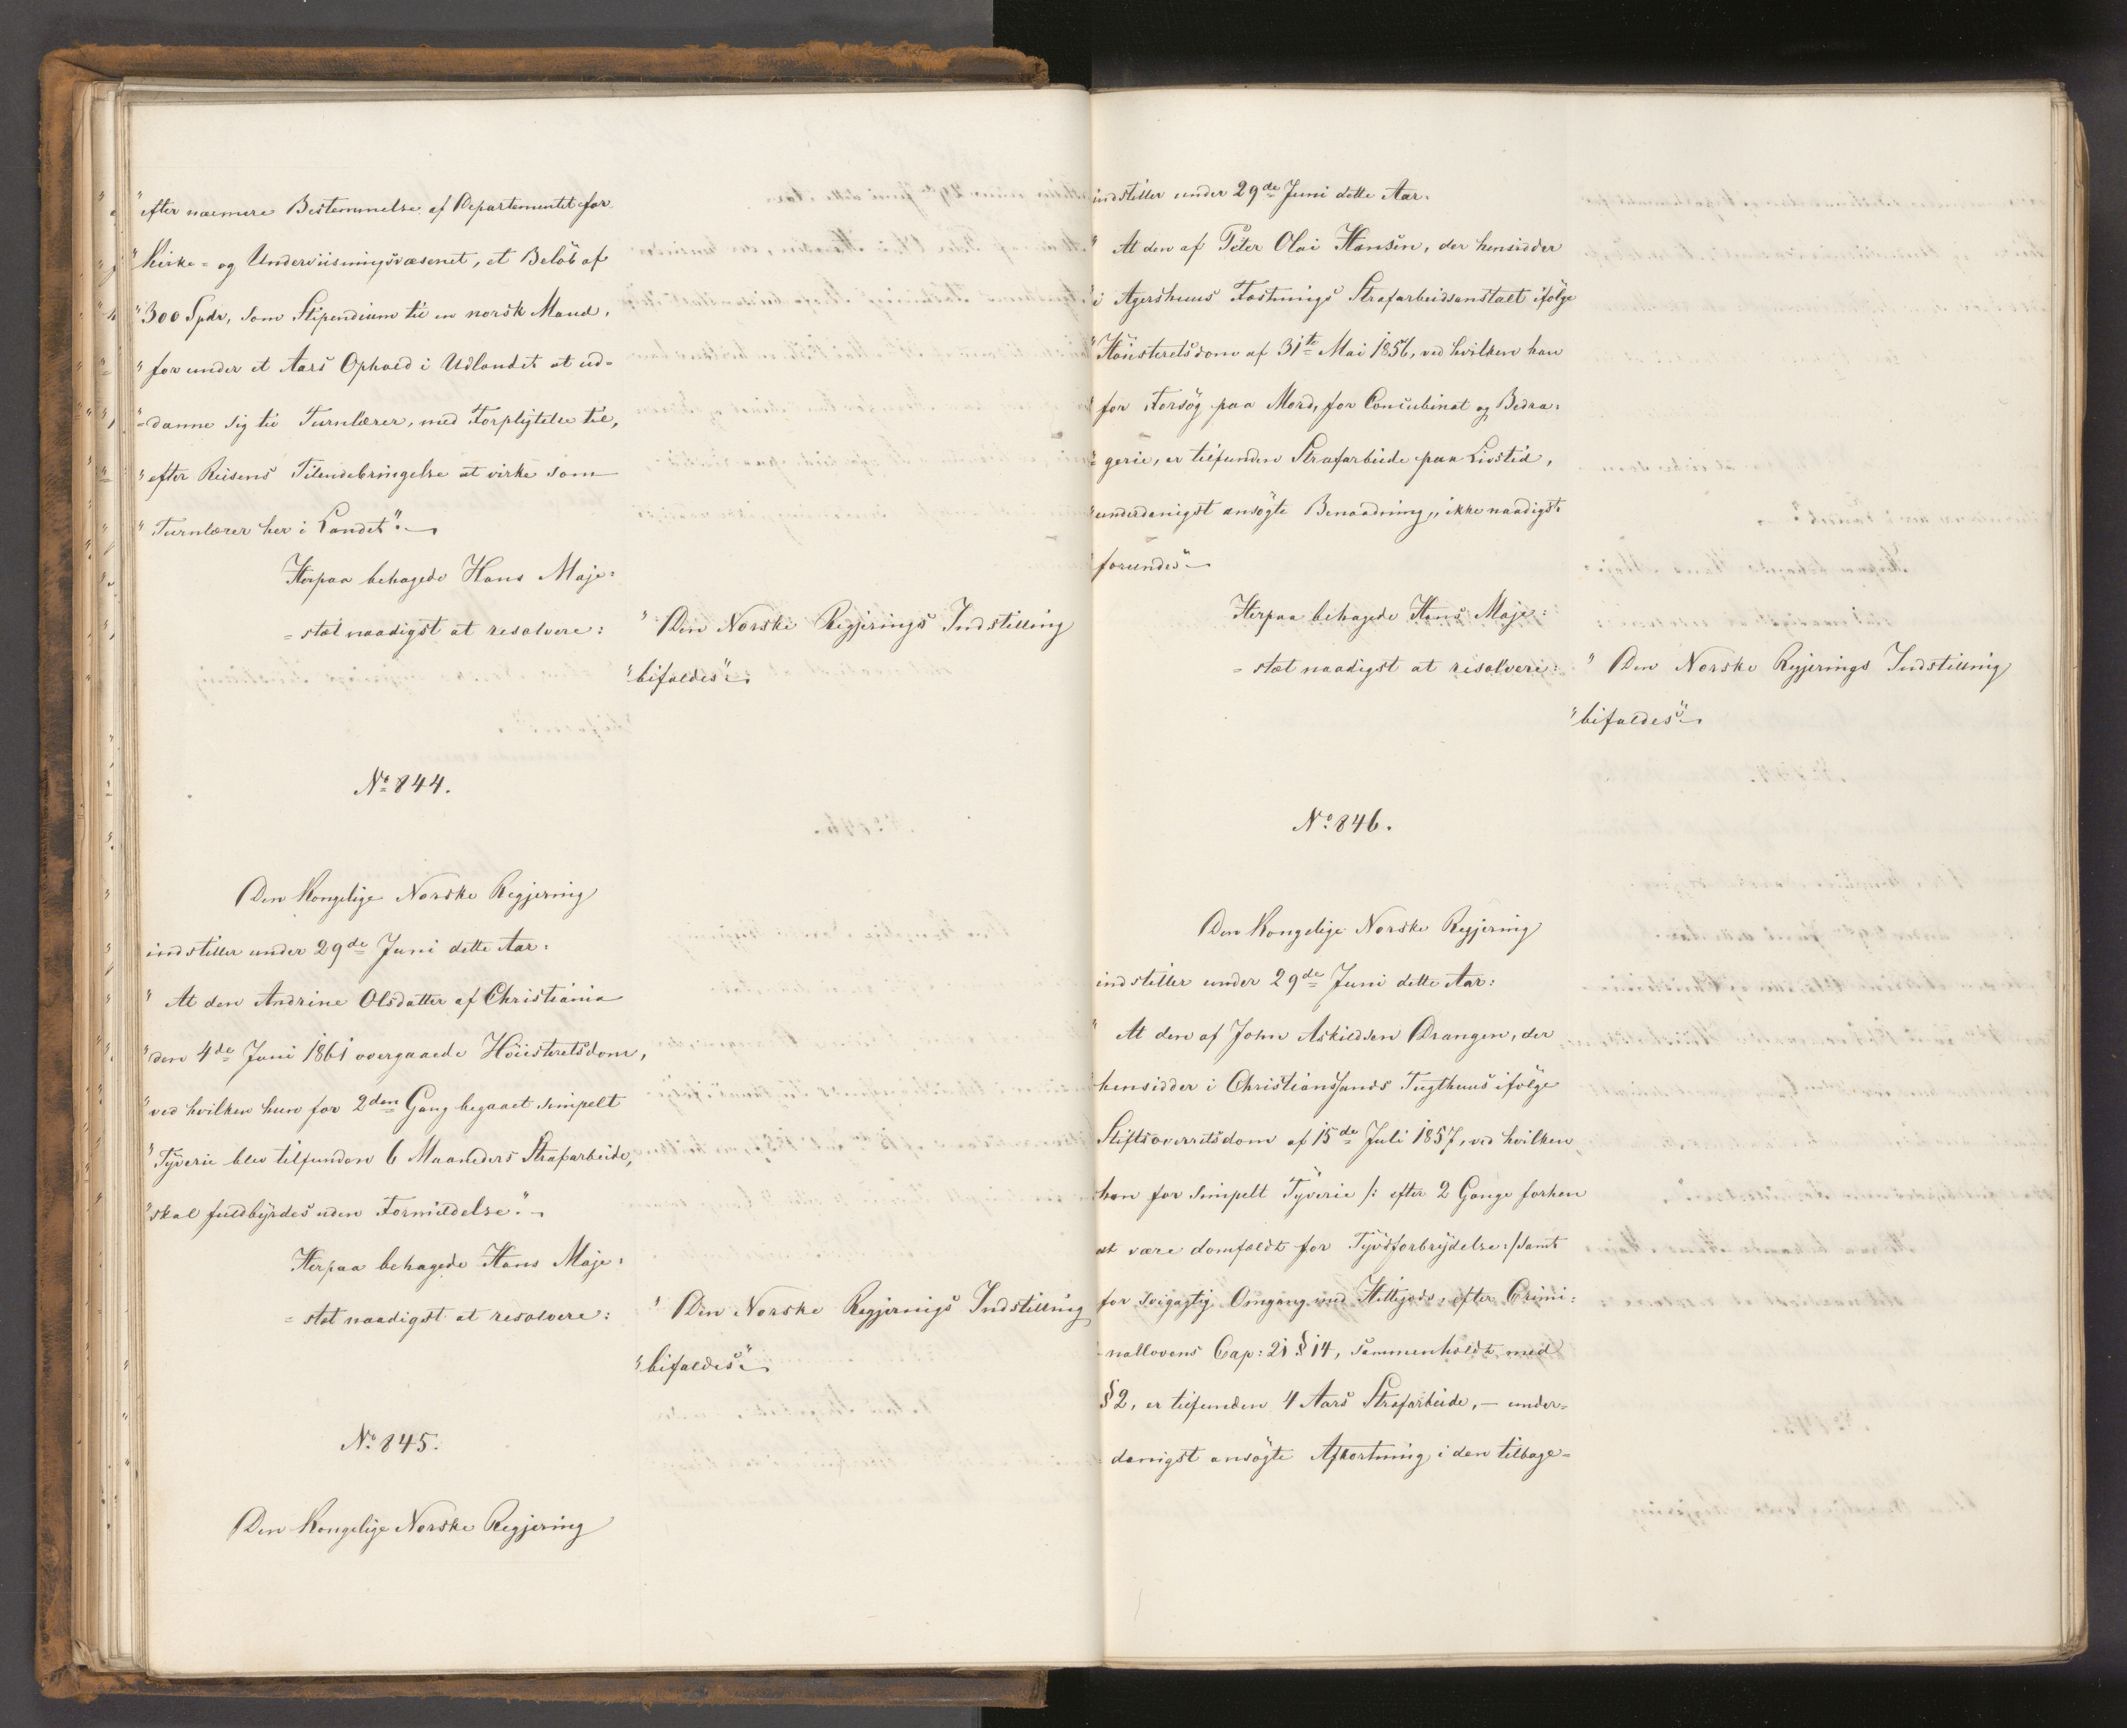 "efter nærmere Bestemmelse af Departementet for
"Kirke- og Underviisningsvæsenet, et Beløb af
"300 Spdr, som Stipendium til en norsk Mand,
"for under et Aars Ophold i Udlandet at ud-
"-danne sig til Turnlærer, med Forpligtelse til,
"efter Reisens Tilendebringelse at virke som
"Turnlærer her i Landet".
Herpaa behagede Hans Maje-
-stæt naadigst at resolvere:
"Den Norske Regjerings Indstilling
"bifaldes".
No 844.
Den Kongelige Norske Regjering
indstiller under 29de Juni dette Aar:
"At den Andrine Olsdatter af Christiania
"den 4de Juni 1861 overgaaede Höiesteretsdom,
"ved hvilken hun for 2den Gang begaaet simpelt
"Tyverie blev tilfunden 6 Maaneders Strafarbeide,
"skal fuldbyrdes uden Formildelse".
Herpaa behagede Hans Maje-
-stæt naadigst at resolvere:
"Den Norske Regjerings Indstilling
"bifaldes".
No 845.
Den Kongelige Norske Regjering
indstiller under 29de Juni dette Aar:
"At den af Peter Olai Hansen, der hensidder
"i Agershuus Fæstnings Strafarbeidsanstalt ifølge
"Höiesteretsdom af 31te Mai 1856, ved hvilken han
"for Forsøg paa Mord, for Concubinat og Bedra-
"gerie, er tilfunden Strafarbeide paa Livstid,
"underdanigst ansøgte Benaadning, ikke naadigst
"forundes"
Herpaa behagede Hans Maje-
-stæt naadigst at resolvere:
"Den Norske Regjerings Indstilling
"bifaldes".
No 846.
Den Kongelige Norske Regjering
indstiller under 29de Juni dette Aar:
"At den af John Askildsen Drangen, der
hensidder i Christianssands Tugthuus ifølge
Stiftsoverretsdom af 15de Juli 1857, ved hvilken
han for simpelt Tyverie /: efter 2 Gange forhen
at være domfældt for Tyvsforbrydelse :/ samt
for svigagtig Omgang med Hittegods, efter Crimi-
nallovens Cap: 21 § 14, sammenholdt med
§ 2, er tilfunden 4 Aars Strafarbeide, - under-
danigst ansøgte Afkortning i den tilbage-